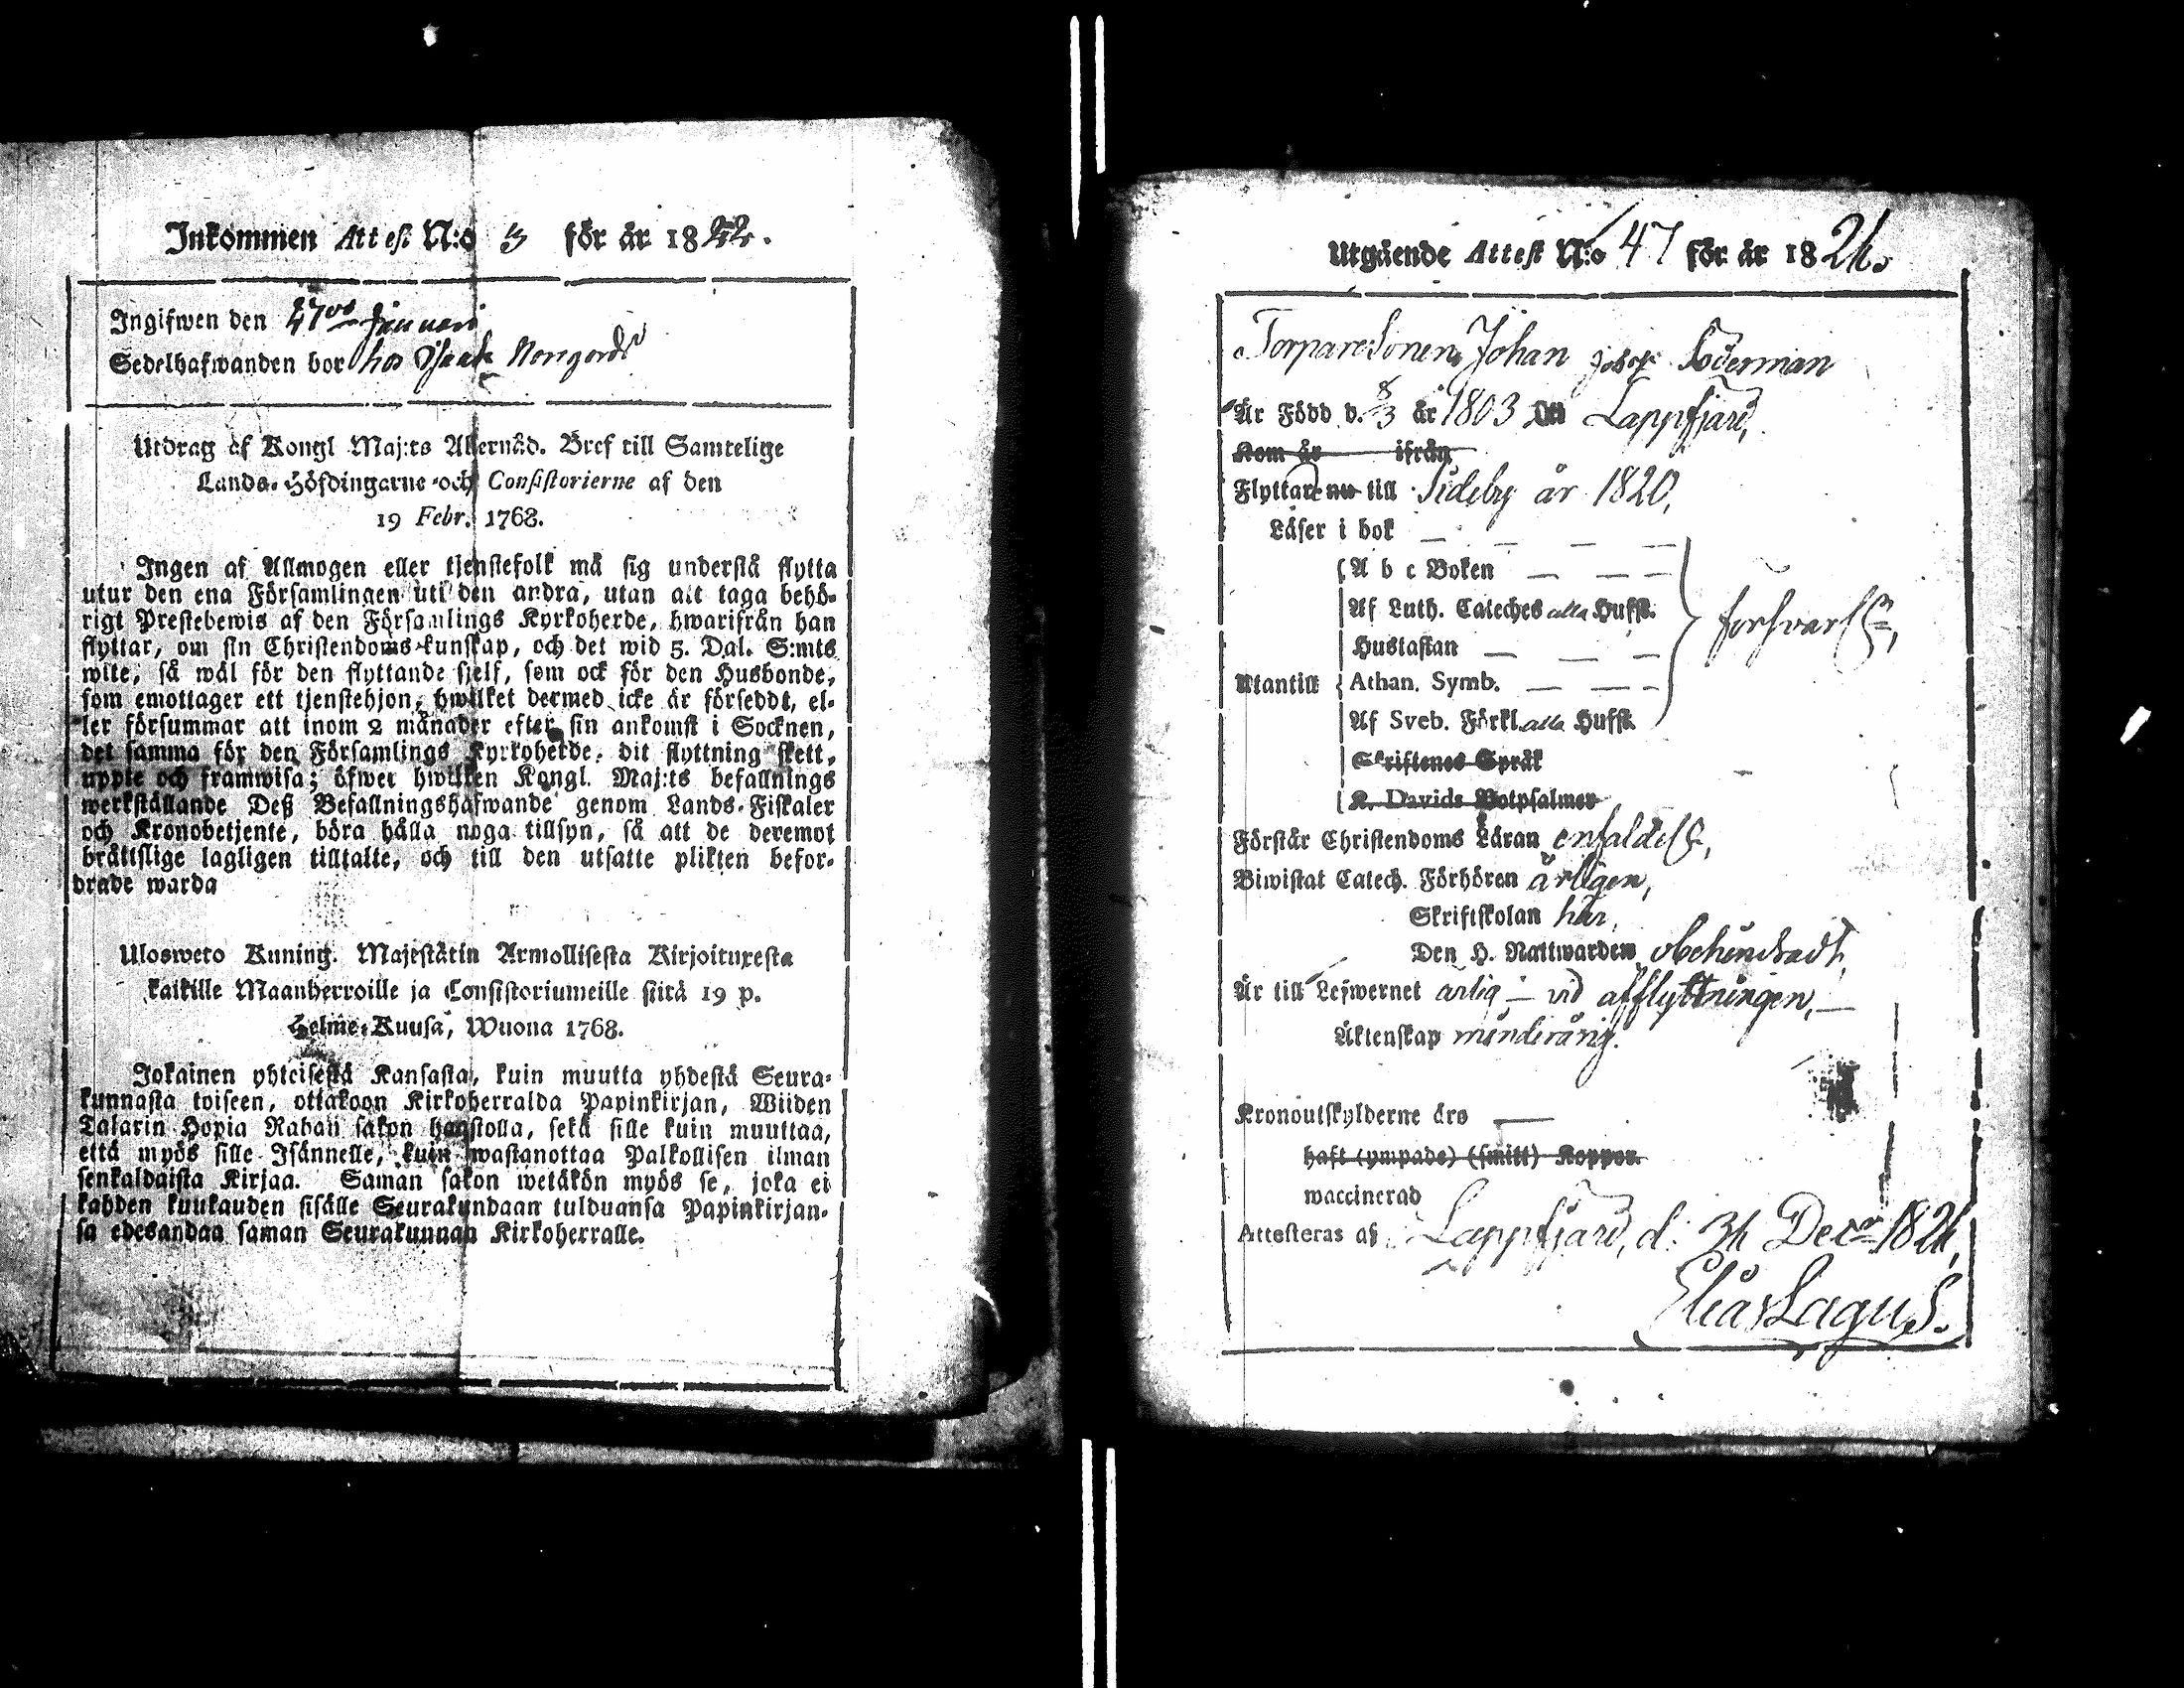 Inkommen Attest N:o 3 för år 1822.
Ingifwen den 27de Januari
Sedelhafwanden bor hos Isaak Norrgårds
Utdrag af Kongl Maj:ts Allernåd. Bref till Samtelige
Lands-Höfdingarne och Consistorierne af den
19 Febr. 1768.
Ingen af Allmogen eller tjenstefolk må sig understå flytta
utur den ena Församlingen uti den andra, utan att taga behö-
rigt Prestebewis af den Församlings Kyrkoherde, hwarifrån han
flyttar, om sin Christendoms-kunskap, och det wid 5. Dal. S:mts
wite, så wäl för den flyttande sjelf, som ock för den Husbonde,
som emottager ett tjenstehjon, hwilket dermed icke är förseddt, el-
ler försummar att inom 2 månader efter sin ankomst i Socknen,
det samma för den Församlings Kyrkoherde, dit flyttning skett,
uppte och framwisa; öfwer hwilken Kongl. Maj:ts befallnings
werkställande Deß Befallningshafwande genom Lands-Fiskaler
och Kronobetjente, böra hålla noga tillsyn, så att de deremot
bråttslige lagligen tilltalte, och till den utsatte plikten befor-
drade warda
Ulosweto Kuning. Majestätin Armollisesta Kirjoituxesta
kaikille Maanherroille ja Consistoriumeille siitä 19 p.
Helme-Kuusa, Wuona 1768.
Jokainen yhteisestä Kansasta, kuin muutta yhdestä Seura-
kunnasta toiseen, ottakoon Kirkoherralda Papinkirjan, Wiiden
Talarin Hopia Rahan sakon haastolla, sekä sille kuin muuttaa,
että myös sille Isännelle, kuin wastanottaa Palkollisen ilman
senkaldaista Kirjaa. Saman sakon wetäkön myös se, joka ei
kahden kuukauden sisälle Seurakundaan tulduansa Papinkirjan-
sa edesandaa saman Seurakunnan Kirkoherralle.
Utgående Attest N:o 47 för år 1821.
Torpare Sonen, Johan Josef Söderman
Är Född d. 8/3 år 1803 i Lappfjärd,
Kom år ifrån
Flyttade nu till Sideby år 1820,
Läser i bok — — — —
A b c Boken — — —
Af Luth. Cateches alla Hufst.
Hustaflan — — — försvarl.,
Utantill Athan. Symb. — — —
Af Sveb. Förkl. alla Hufst.
Skriftenes Språk
K. Davids Botpsalmer
Förstår Christendoms Läran enfaldel.,
Biwistat Catech. Förhören årligen,
Skriftskolan här,
Den H. Nattwarden obehindradt,
Är till Lefwernet ärlig — vid afflyttningen, —
Äktenskap minderårig.
Kronoutskylderne äro —
haft (ympade) (smitt) Koppor.
waccinerad
Attesteras af Lappfjärd, d: 31 Decr 1821,
Elias Lagus.